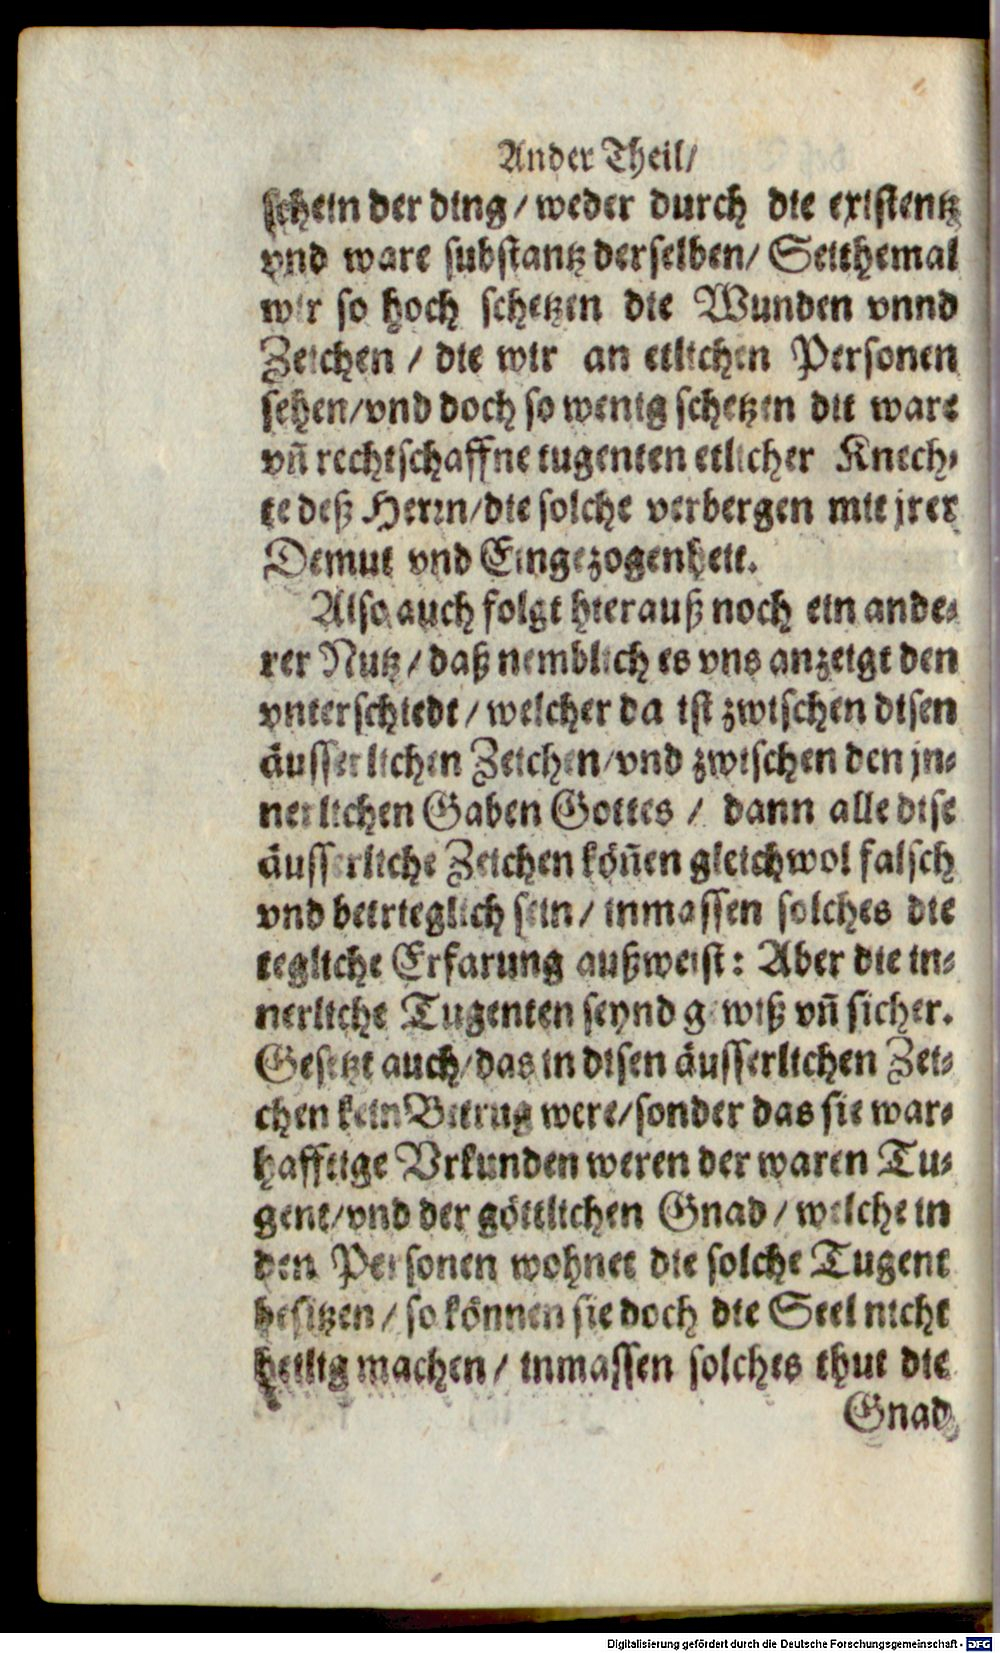 Ander Theil/
schein der ding/ weder durch die existentz
vnd ware substantz derselben/ Seithemal
wir so hoch schetzen die Wunden vnnd
Zeichen / die wir an etlichen Personen
sehen/vnd doch so wenig schetzen die ware
vñ rechtschaffne tugenten etlicher Knech-
te deß Herrn/die solche verbergen mit jrer
Demut vnd Eingezogenheit.
Also auch folgt hierauß noch ein ande-
rer Nutz/ daß nemblich es vns anzeigt den
vnterschiedt/ welcher da ist zwischen disen
äusserlichen Zeichen/vnd zwischen den jn-
nerlichen Gaben Gottes / dann alle dise
äusserliche Zeichen köñen gleichwol falsch
vnd betrieglich sein/ inmassen solches die
tegliche Erfarung außweist: Aber die in-
nerliche Tugenten seynd gewiß vñ sicher.
Gesetzt auch/das in disen äusserlichen Zei-
chen kein Betrug were/sonder das sie war-
hafftige Vrkunden weren der waren Tu-
gent/vnd der göttlichen Gnad/ welche in
den Personen wohnet die solche Tugent
besitzen/ so können sie doch die Seel nicht
heilig machen/ inmassen solches thut die
Gnad
Digitalisierung gefördert durch die Deutsche Forschungsgemeinschaft - DFG